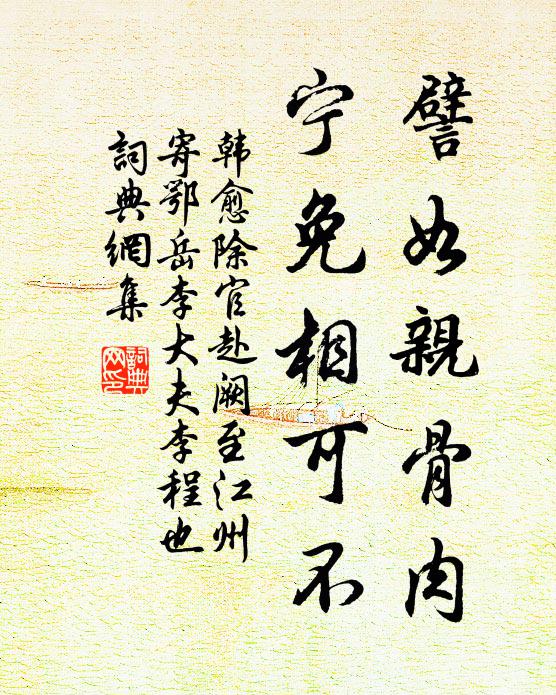 譬如親骨肉
宁免相可不
韩愈除官赴阙至江州
寄鄂岳李大夫李程也
詞典網集
詞典网印